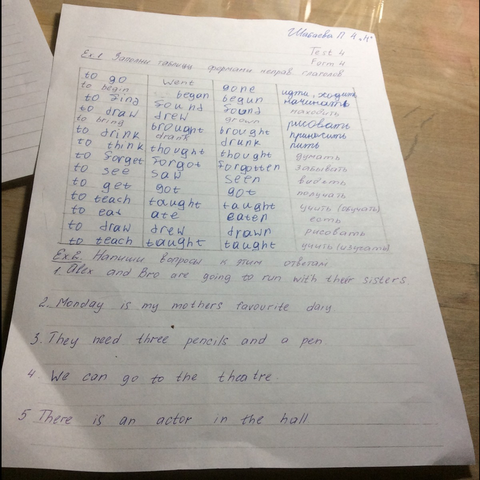 Шабаева П 4 "А"
Test 4
Form 4
Ex.1 Заполни таблицу формами неправ глаголов
to go went gone идти, ходить
to begin began begun начинать
to find found found находить
to draw drew grown рисовать
to bring brought brought приносить
to drink drank drunk пить
to think thought thought думать
to forget forgot forgotten забывать
to see saw seen видеть
to get got got получать
to teach taught taught учить (обучать)
to eat ate eaten есть
to draw drew drawn рисовать
to teach taught taught учить (изучать)
Ex.2. Напиши вопросы к этим ответам
1. Alex and Bro are going to run with their sisters.
2. Monday is my mothers favourite day.
3. They need three pencils and a pen.
4 We can go to the theatre.
5 There is an actor in the hall